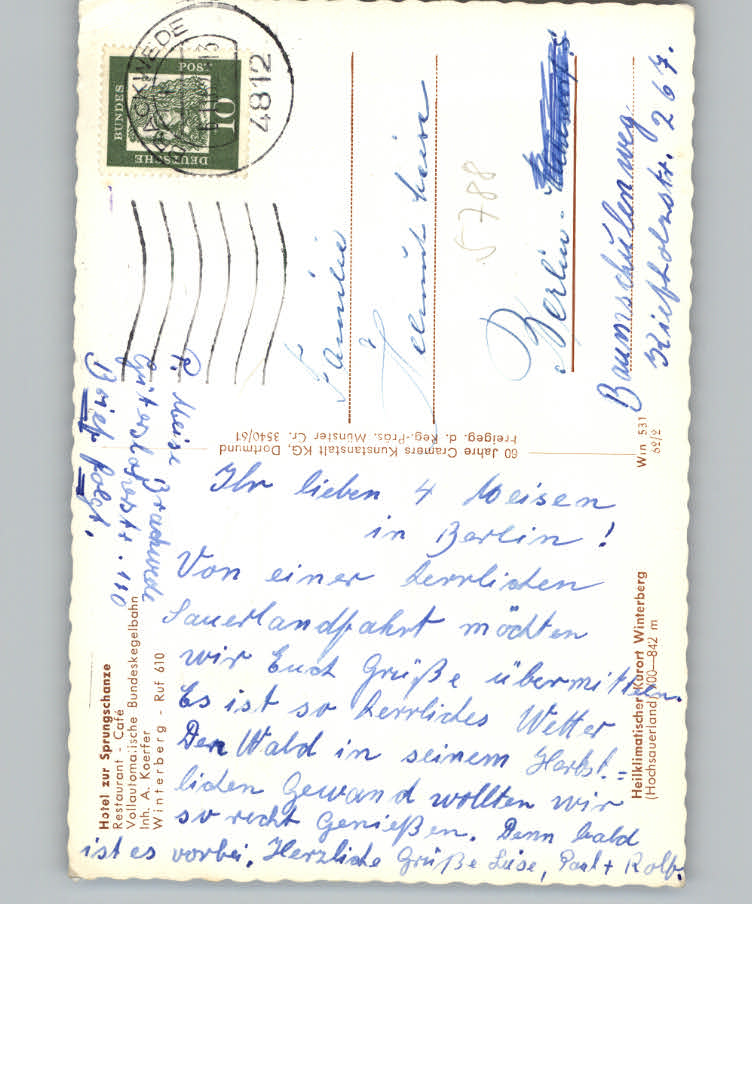 BRACKWEDE
4812
DEUTSCHE
BUNDES
POST
10
Familie
Helmut Meise
5788
Berlin-
Baumschulenweg
Kiefholzstr. 267.
P. Meise Brackwede
Gütersloherstr. 110
Brief folgt.
60 Jahre Cramers Kunstanstalt KG, Dortmund
Freigeg. d. Reg.-Präs. Münster Cr. 3540/61
Win 531
62/2
Ihr lieben 4 Meisen
in Berlin!
Von einer herrlichen
Sauerlandfahrt möchten
wir Euch Grüße übermitteln.
Es ist so herrliches Wetter
Den Wald in seinem Herbst=
lichen Gewand wollten wir
so recht Genießen. Denn bald
ist es vorbei. Herzliche Grüße Luise, Paul + Rolf.
Hotel zur Sprungschanze
Restaurant - Café
Vollautomatische Bundeskegelbahn
Inh. A. Kaerfer
Winterberg - Ruf 610
Heilklimatischer Kurort Winterberg
(Hochsauerland) 700—842 m